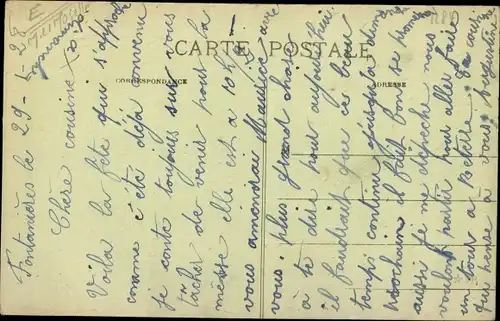 CARTE POSTALE
CORRESPONDANCE
ADRESSE
Fontanières le 29-5-28
Chère cousine
Voila la fête qui s'approche
comme c'été déjà convenu
je conte toujours sur vous
tacher de venir pour la
messe elle est a 10h ½
vous amondrai Maurice avec
vous plus grand chose
a te dire pour aujourd'hui
il faudrait que ce beau
temps continue jusqu'a dimanche
prochain il fait bon se promener
aussi je me depeche nous
voulons partir pour aller faire
un tour a Retelle ta cousine
qui pense a